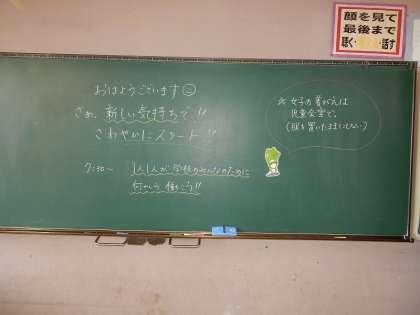 顔を見て
最後まで
聴く・  ・話す
おはようございます
さぁ、新しい気持ちで!!
さわやかにスタート!!
7:30〜 1人1人が学校のみんなのために
何かしら 働こう!!
☆女子の着がえは
児童会室で。
(服を置いたままにしない)